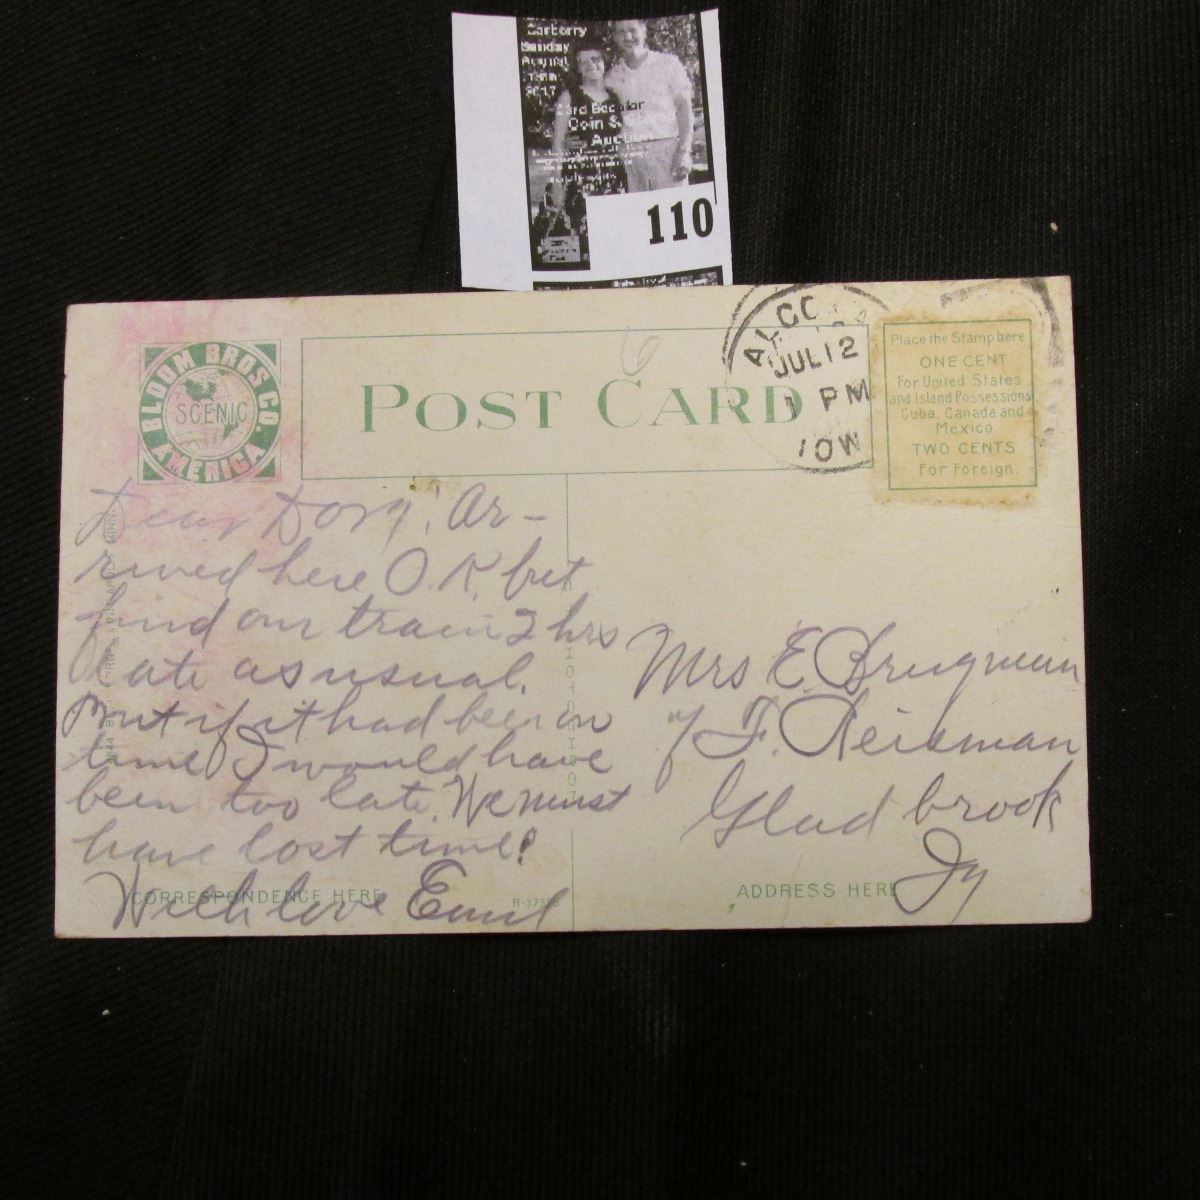 Carberry
Sunday
August
2017
Coin & Stamp
Auction
110
BLOOM BROS. CO.
SCENIC
AMERICA
POST CARD
6
ALGONA
JUL 12
1 PM
IOW
Place the Stamp here
ONE CENT
For United States
and Island Possessions
Cuba, Canada and
Mexico.
TWO CENTS
For Foreign.
Dear Dory! Ar-
rived here O.K. but
find our train 2 hrs
late as usual.
But if it had been on
time I would have
been too late. We must
have lost time!
With love Emil
Mrs E. Brugman
% F. Reisman
Gladbrook
Ia
CORRESPONDENCE HERE
R-37356
ADDRESS HERE